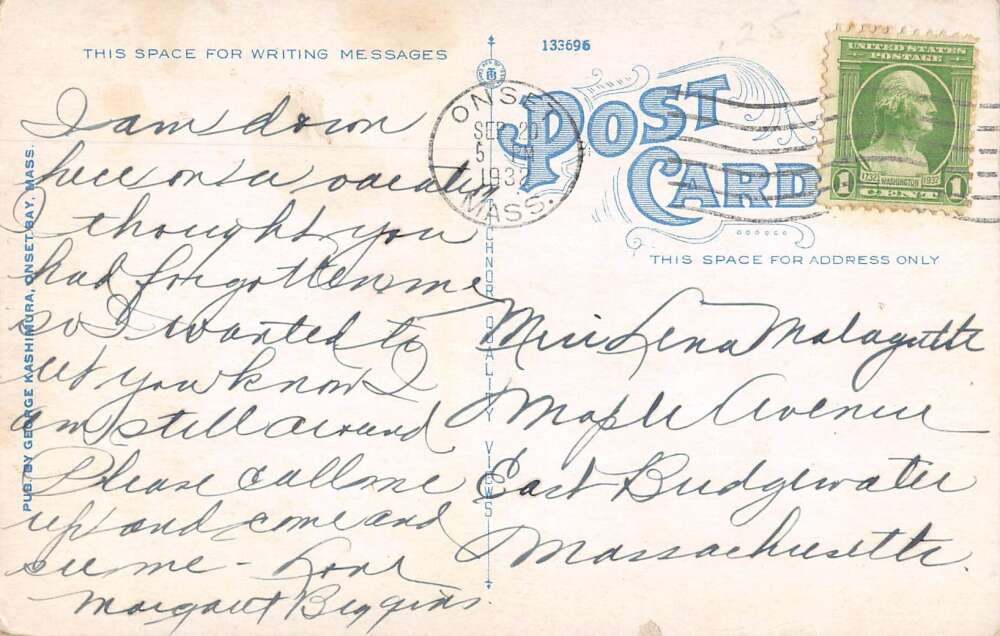 .25
THIS SPACE FOR WRITING MESSAGES
133696
POST
CARD
THIS SPACE FOR ADDRESS ONLY
UNITED STATES
POSTAGE
1732 WASHINGTON 1932
1 CENT 1
ONSET
SEP 20
5 PM
1932
MASS.
PUB. BY GEORGE KASHIMURA, ONSET BAY, MASS.
TICHNOR QUALITY VIEWS
I am down
here on a vacation
thought you
had forgotten me
so I wanted to
let you know I
am still around
Please call me
up and come and
see me - Love
Margaret Beggins.
Miss Lena Malagutti
Maple Avenue
East Bridgewater
Massachusetts.